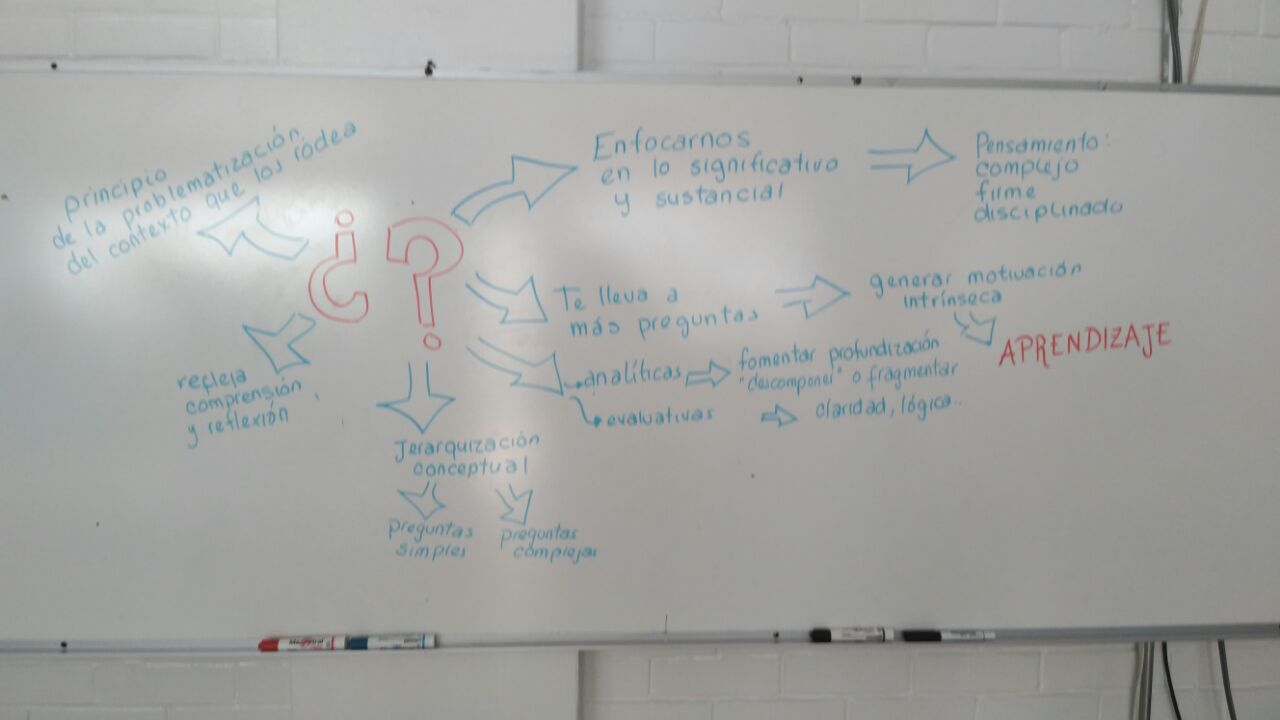 principio
de la problematización
del contexto que los ródea
¿?
Enfocarnos
en lo significativo
y sustancial
Pensamiento:
complejo
firme
disciplinado
Te lleva a
más preguntas
generar motivación
intrínseca
APRENDIZAJE
analíticas
fomentar profundización
"descomponer" o fragmentar
evaluativas
claridad, lógica...
refleja
comprensión
y reflexión
Jerarquización
conceptual
preguntas
simples
preguntas
complejas